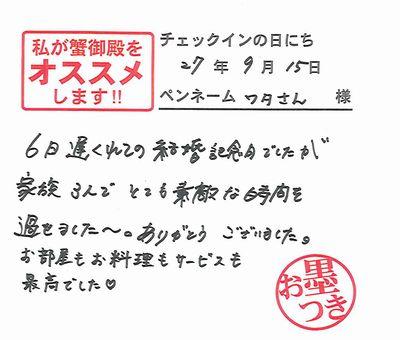 私が蟹御殿を
オススメ
します!!
チェックインの日にち
27年9月15日
ペンネーム ワタさん 様
6日遅くれての結婚記念日でしたが
家族3人で とても素敵な時間を
過せました〜。ありがとう ございました。
お部屋もお料理もサービスも
最高でした♡
お墨
つき